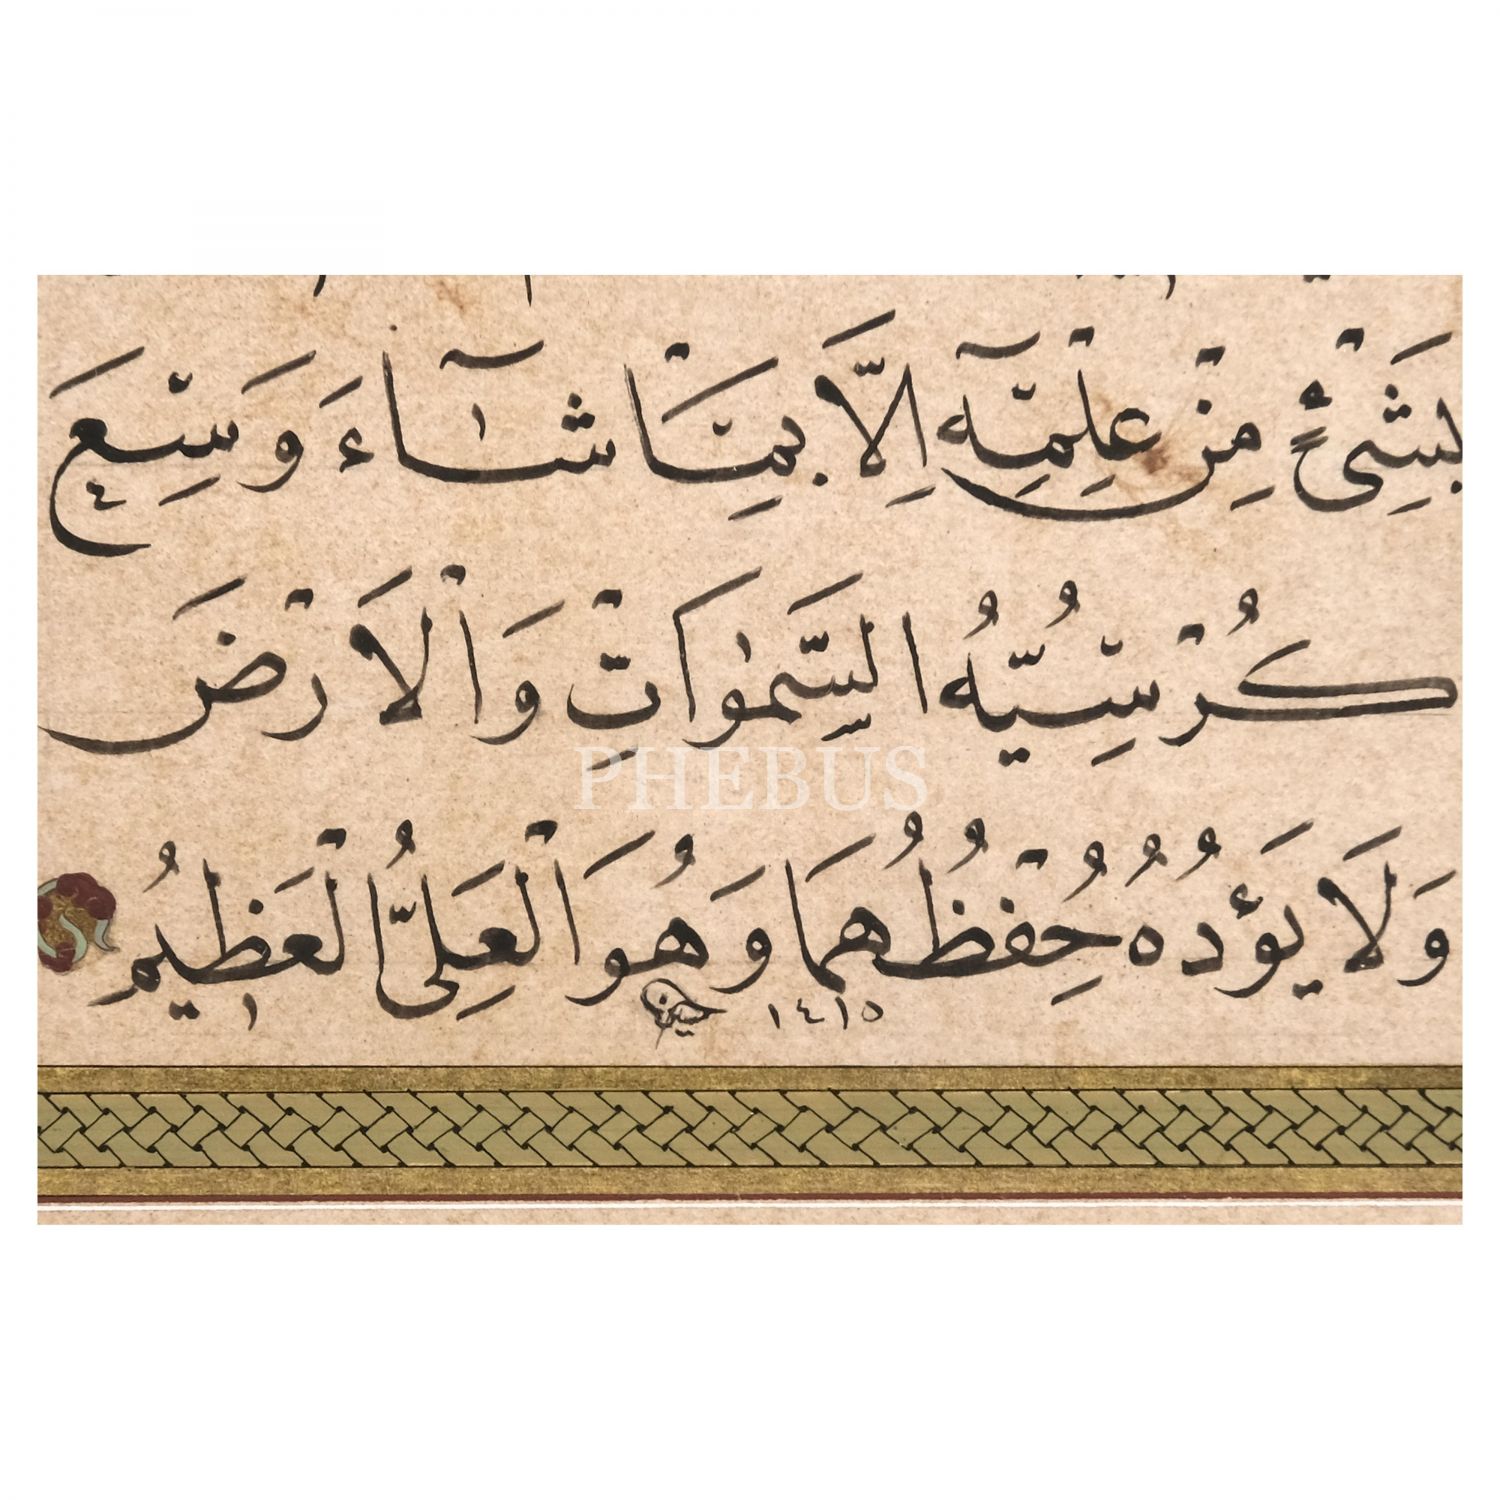 بِشَىْءٍ مِنْ عِلْمِهٖٓ اِلَّا بِمَا شَٓاءَ وَسِعَ
كُرْسِيُّهُ السَّمٰوَاتِ وَالْاَرْضَ
وَلَا يَؤُدُهُ حِفْظُهُمَا وَهُوَ الْعَلِىُّ الْعَظِيمُ
١٤١٥
PHEBUS